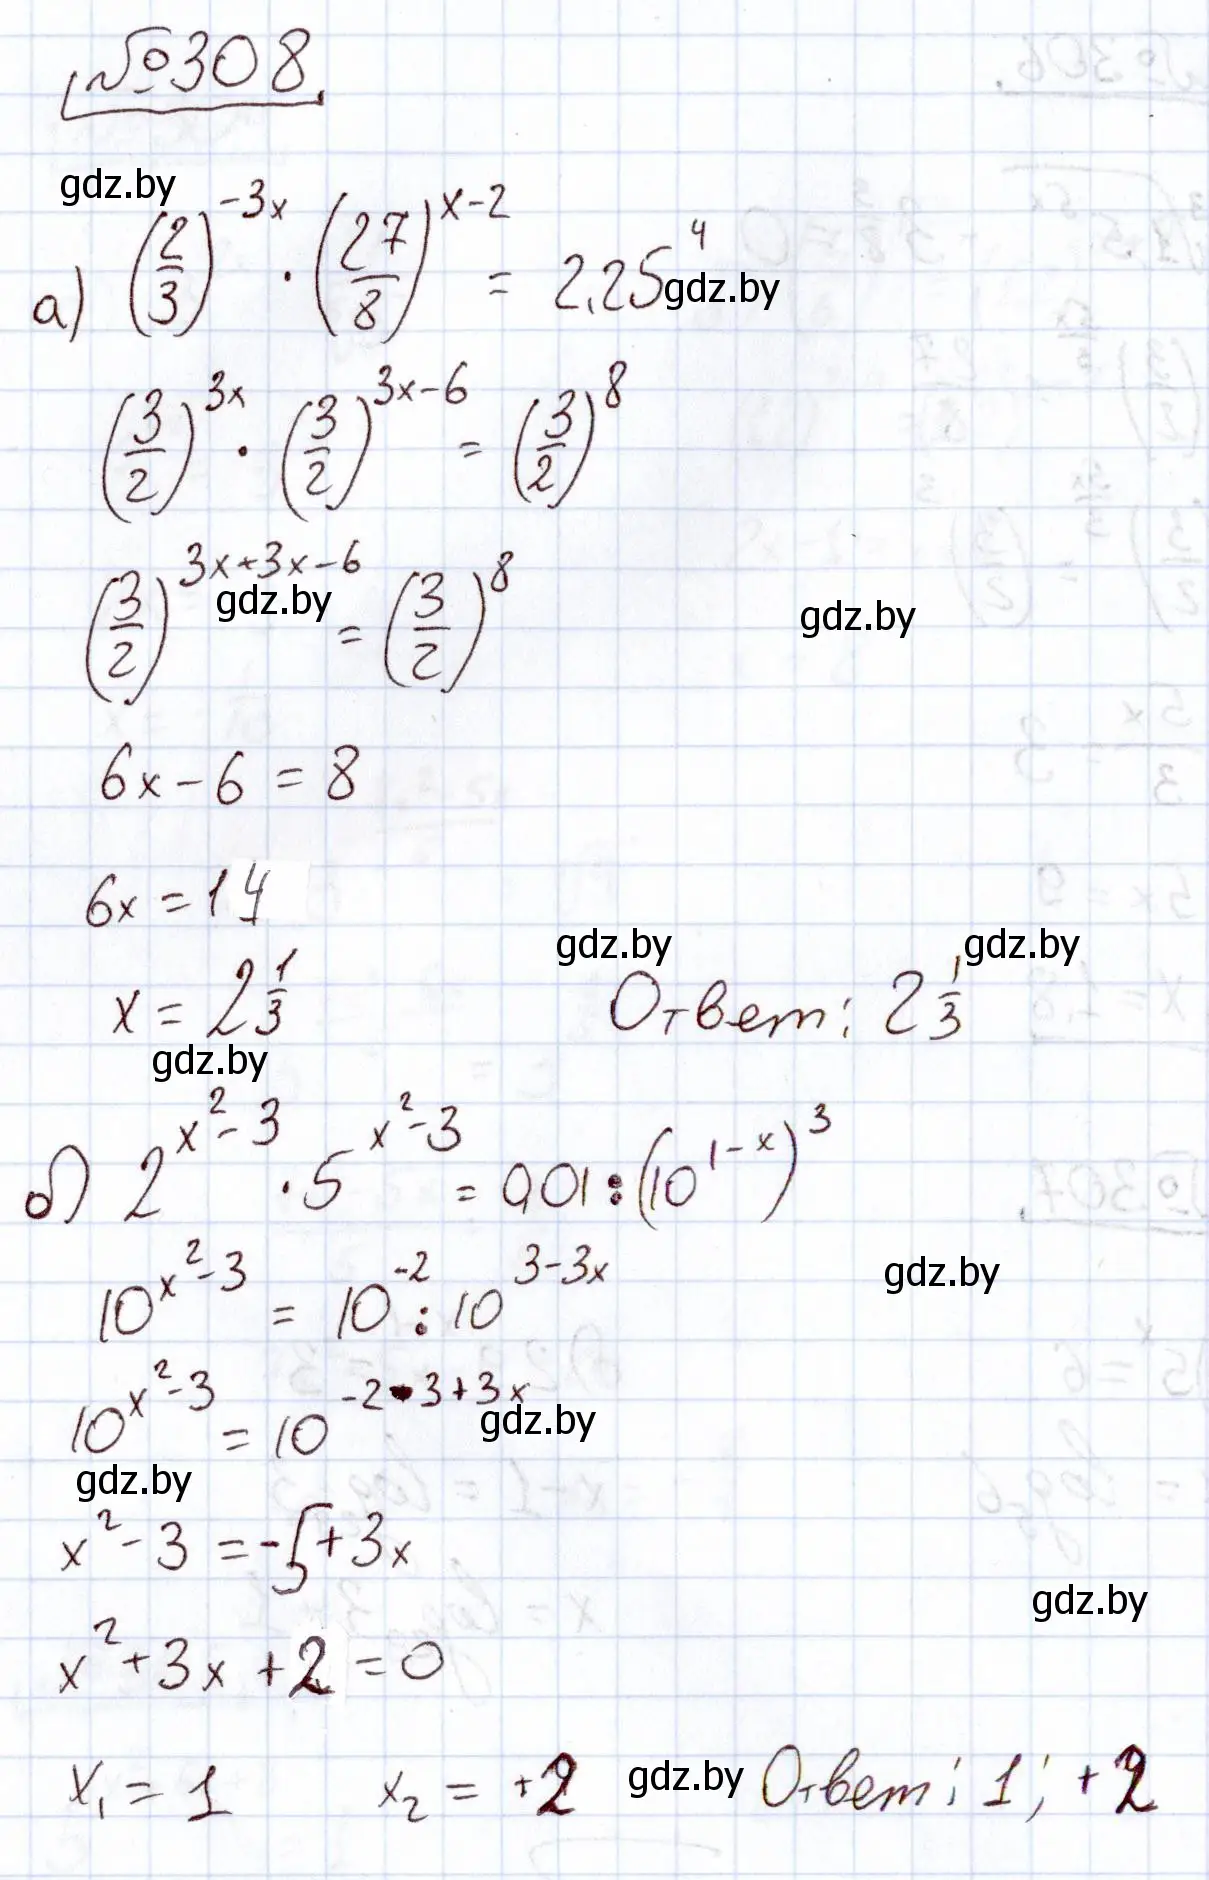 №308
gdz.by
а) (2/3)^(-3x) · (27/8)^(x-2) = 2,25^4
gdz.by
(3/2)^(3x) · (3/2)^(3x-6) = (3/2)^8
(3/2)^(3x+3x-6) = (3/2)^8
gdz.by
gdz.by
6x-6 = 8
6x = 14
gdz.by gdz.by
x = 2 1/3 Ответ: 2 1/3
gdz.by
б) 2^(x²-3) · 5^(x²-3) = 0,01 : (10^(1-x))^3
gdz.by
10^(x²-3) = 10^(-2) : 10^(3-3x)
10^(x²-3) = 10^(-2-3+3x)
gdz.by
gdz.by
x²-3 = -5+3x
gdz.by
x²+3x+2=0
x₁ = 1 x₂ = +2 gdz.by Ответ: 1; +2